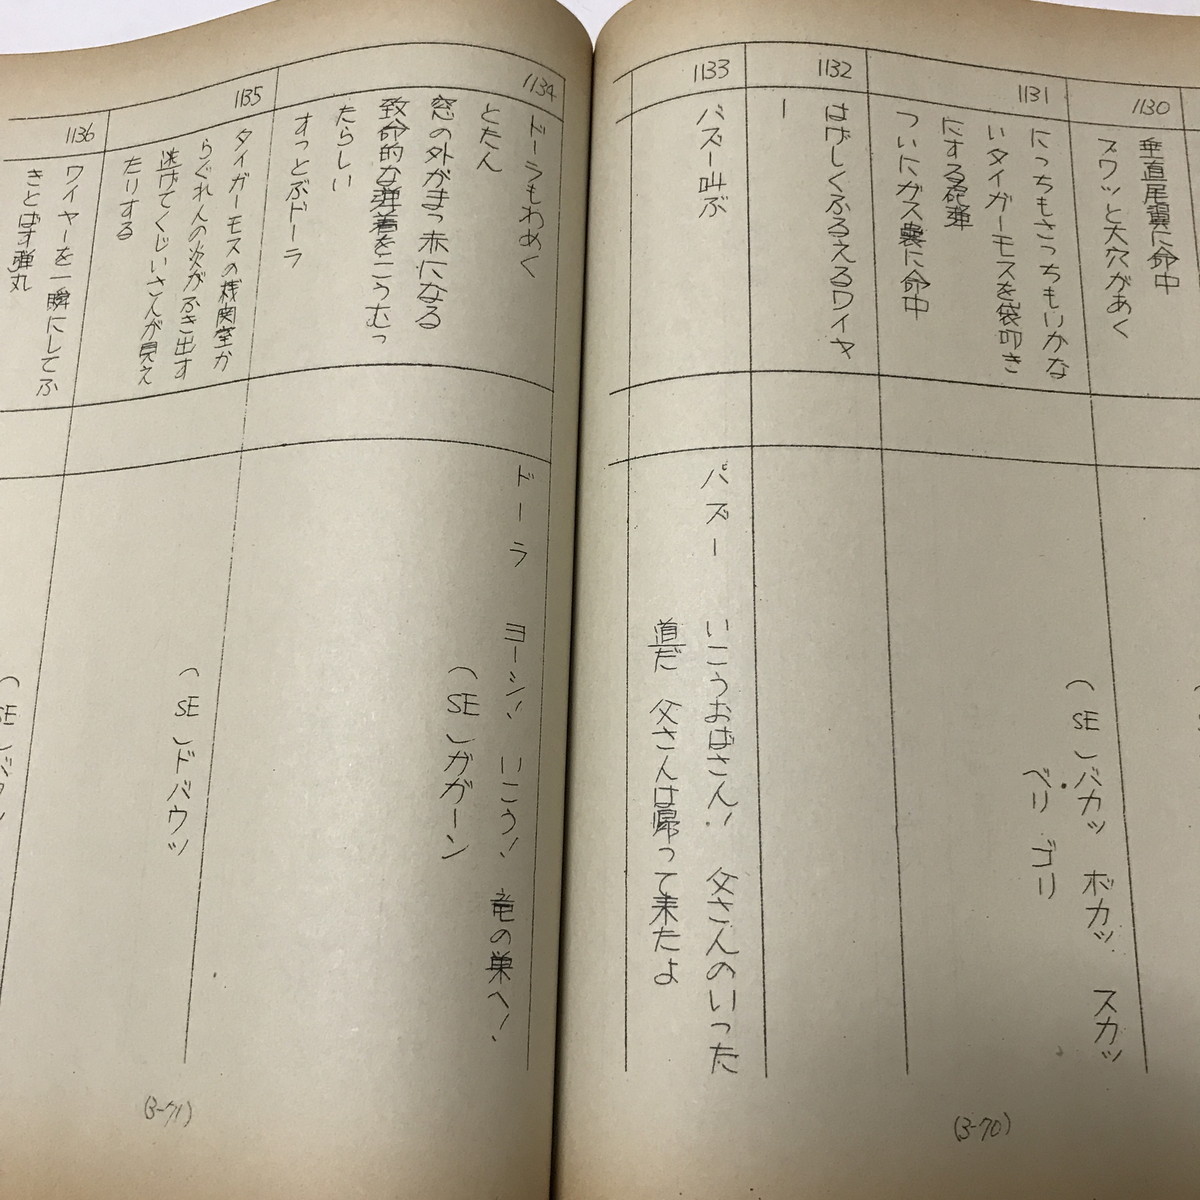 1130
垂直尾翼に命中
ズワッと大穴があく
1131
にっちもさっちもいかな
いタイガーモスを袋叩き
にする砲弾
ついにガス嚢に命中
(SE)バカッ ボカッ スカッ
ベリ ゴリ
1132
はげしくふるえるワイヤ
ー
1133
パズー叫ぶ
パズー いこうおばさん! 父さんのいった
道だ 父さんは帰って来たよ
(3-70)
1134
ドーラもわめく
とたん
窓の外がまっ赤になる
致命的な弾着をこうむっ
たらしい
すっとぶドーラ
ドーラ ヨーシ! いこう! 竜の巣へ!
(SE)ガガーン
1135
タイガーモスの機関室か
らぐれんの炎がふき出す
逃げてくじいさんが見え
たりする
(SE)ドバウッ
1136
ワイヤーを一瞬にしてふ
きとばす弾丸
(SE)
(3-71)